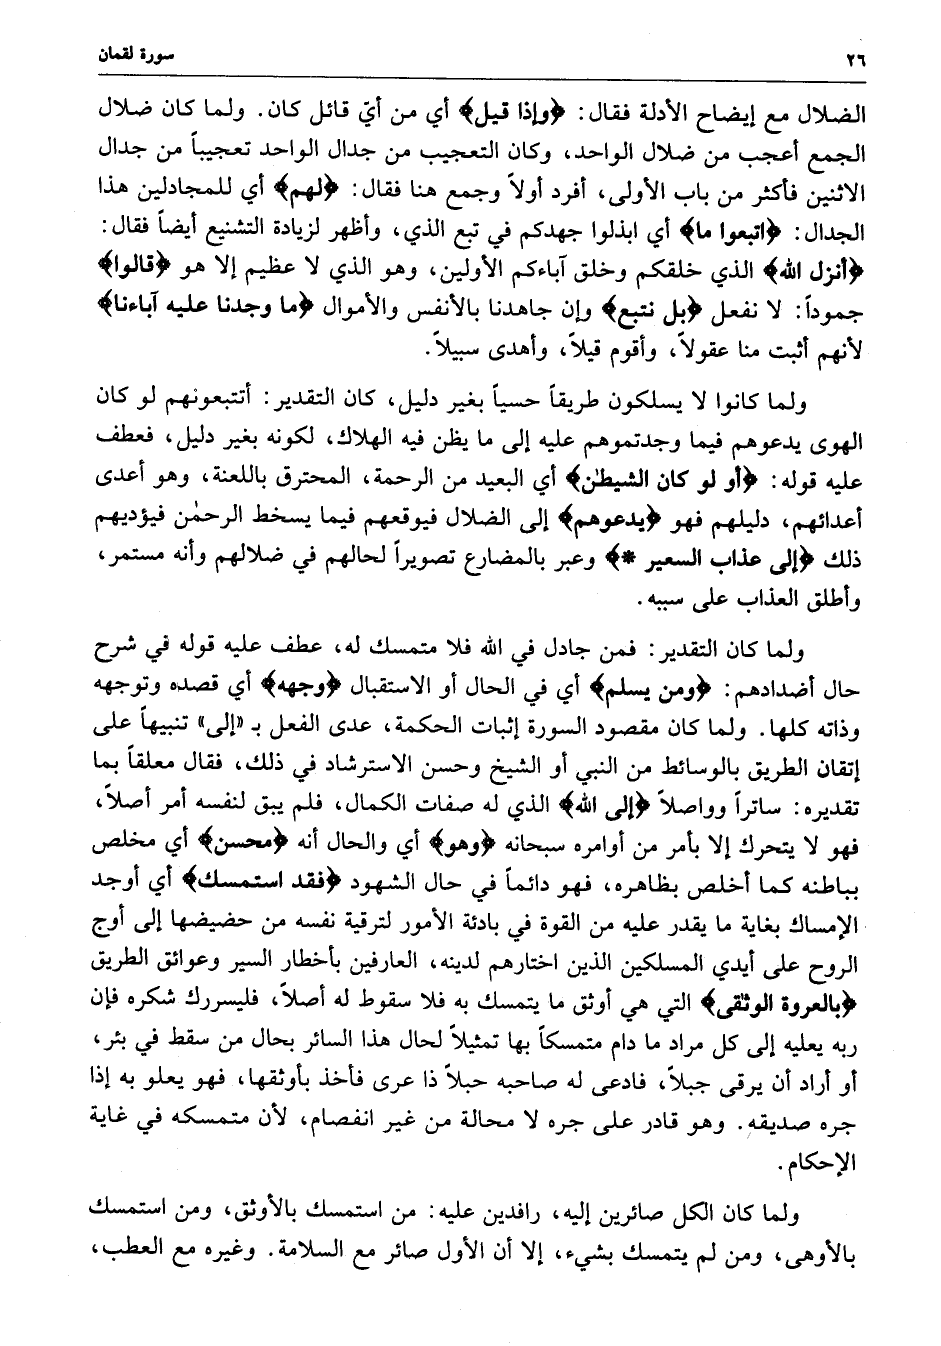 ٢٦ سورة لقمان
الضلال مع إيضاح الأدلة فقال: ﴿وإذا قيل﴾ أي من أيّ قائل كان. ولما كان ضلال
الجمع أعجب من ضلال الواحد، وكان التعجيب من جدال الواحد تعجيباً من جدال
الاثنين فأكثر من باب الأولى، أفرد أولاً وجمع هنا فقال: ﴿لهم﴾ أي للمجادلين هذا
الجدال: ﴿اتبعوا ما﴾ أي ابذلوا جهدكم في تبع الذي، وأظهر لزيادة التشنيع أيضاً فقال:
﴿أنزل الله﴾ الذي خلقكم وخلق آباءكم الأولين، وهو الذي لا عظيم إلا هو ﴿قالوا﴾
جموداً: لا نفعل ﴿بل نتبع﴾ وإن جاهدنا بالأنفس والأموال ﴿ما وجدنا عليه آباءنا﴾
لأنهم أثبت منا عقولاً، وأقوم قيلاً، وأهدى سبيلاً.
ولما كانوا لا يسلكون طريقاً حسياً بغير دليل، كان التقدير: أتتبعونهم لو كان
الهوى يدعوهم فيما وجدتموهم عليه إلى ما يظن فيه الهلاك، لكونه بغير دليل، فعطف
عليه قوله: ﴿أو لو كان الشيطٰن﴾ أي البعيد من الرحمة، المحترق باللعنة، وهو أعدى
أعدائهم، دليلهم فهو ﴿يدعوهم﴾ إلى الضلال فيوقعهم فيما يسخط الرحمٰن فيؤديهم
ذلك ﴿إلى عذاب السعير *﴾ وعبر بالمضارع تصويراً لحالهم في ضلالهم وأنه مستمر،
وأطلق العذاب على سببه.
ولما كان التقدير: فمن جادل في الله فلا متمسك له، عطف عليه قوله في شرح
حال أضدادهم: ﴿ومن يسلم﴾ أي في الحال أو الاستقبال ﴿وجهه﴾ أي قصده وتوجهه
وذاته كلها. ولما كان مقصود السورة إثبات الحكمة، عدى الفعل بـ «إلى» تنبيهاً على
إتقان الطريق بالوسائط من النبي أو الشيخ وحسن الاسترشاد في ذلك، فقال معلقاً بما
تقديره: سائراً وواصلاً ﴿إلى الله﴾ الذي له صفات الكمال، فلم يبق لنفسه أمر أصلاً،
فهو لا يتحرك إلا بأمر من أوامره سبحانه ﴿وهو﴾ أي والحال أنه ﴿محسن﴾ أي مخلص
بباطنه كما أخلص بظاهره، فهو دائماً في حال الشهود ﴿فقد استمسك﴾ أي أوجد
الإمساك بغاية ما يقدر عليه من القوة في بادئة الأمور لترقية نفسه من حضيضها إلى أوج
الروح على أيدي المسلكين الذين اختارهم لدينه، العارفين بأخطار السير وعوائق الطريق
﴿بالعروة الوثقى﴾ التي هي أوثق ما يتمسك به فلا سقوط له أصلاً، فليسررك شكره فإن
ربه يعليه إلى كل مراد ما دام متمسكاً بها تمثيلاً لحال هذا السائر بحال من سقط في بئر،
أو أراد أن يرقى جبلاً، فادعى له صاحبه حبلاً ذا عرى فأخذ بأوثقها، فهو يعلو به إذا
جره صديقه. وهو قادر على جره لا محالة من غير انفصام، لأن متمسكه في غاية
الإحكام.
ولما كان الكل صائرين إليه، رافدين عليه: من استمسك بالأوثق، ومن استمسك
بالأوهى، ومن لم يتمسك بشيء، إلا أن الأول صائر مع السلامة. وغيره مع العطب،